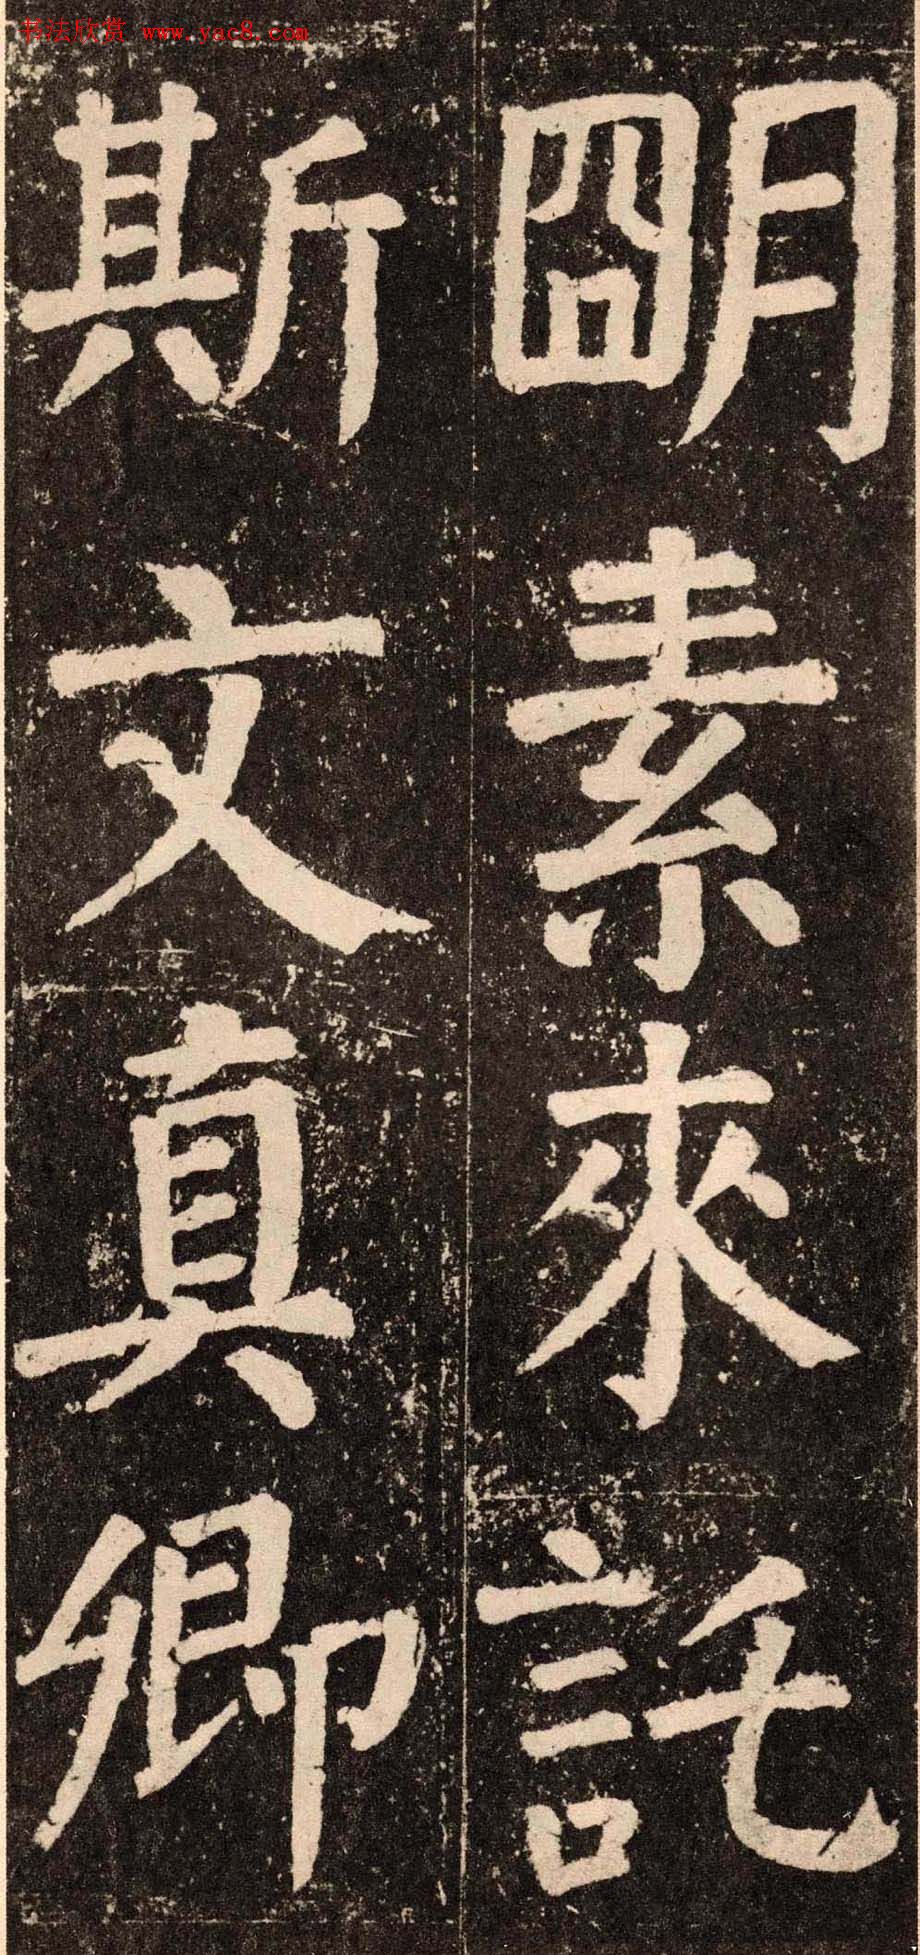 书法欣赏 www.yac8.com
朙素來託
斯文真卿